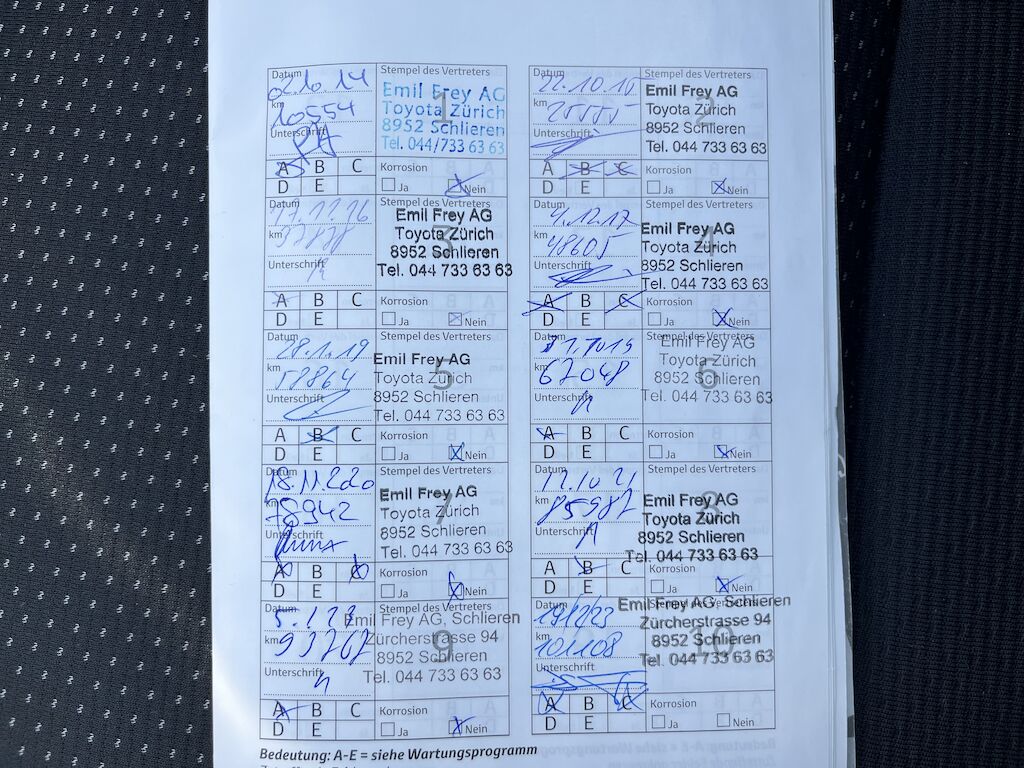 Datum
02.10.14
km
10554
Unterschrift
Stempel des Vertreters
1
Emil Frey AG
Toyota Zürich
8952 Schlieren
Tel. 044/733 63 63
A B C
D E
Korrosion
Ja Nein
Datum
22.10.15
km
25555
Unterschrift
Stempel des Vertreters
2
Emil Frey AG
Toyota Zürich
8952 Schlieren
Tel. 044 733 63 63
A B C
D E
Korrosion
Ja Nein
Datum
km
Unterschrift
Stempel des Vertreters
3
Emil Frey AG
Toyota Zürich
8952 Schlieren
Tel. 044 733 63 63
A B C
D E
Korrosion
Ja Nein
Datum
4.12.17
km
48605
Unterschrift
Stempel des Vertreters
4
Emil Frey AG
Toyota Zürich
8952 Schlieren
Tel. 044 733 63 63
A B C
D E
Korrosion
Ja Nein
Datum
28.1.19
km
58864
Unterschrift
Stempel des Vertreters
5
Emil Frey AG
Toyota Zürich
8952 Schlieren
Tel. 044 733 63 63
A B C
D E
Korrosion
Ja Nein
Datum
km
67048
Unterschrift
Stempel des Vertreters
6
Emil Frey AG
Toyota Zürich
8952 Schlieren
Tel. 044 733 63 63
A B C
D E
Korrosion
Ja Nein
Datum
18.11.2020
km
78942
Unterschrift
Stempel des Vertreters
7
Emil Frey AG
Toyota Zürich
8952 Schlieren
Tel. 044 733 63 63
A B C
D E
Korrosion
Ja Nein
12.10 21
km
85987
Unterschrift
Stempel des Vertreters
8
Emil Frey AG
Toyota Zürich
8952 Schlieren
Tel. 044 733 63 63
A B C
D E
Korrosion
Ja Nein
Datum
km
93767
Unterschrift
Stempel des Vertreters
9
Emil Frey AG, Schlieren
Zürcherstrasse 94
8952 Schlieren
Tel. 044 733 63 63
A B C
D E
Korrosion
Ja Nein
Datum
km
101108
Unterschrift
Stempel des Vertreters
10
Emil Frey AG, Schlieren
Zürcherstrasse 94
8952 Schlieren
Tel. 044 733 63 63
A B C
D E
Korrosion
Ja Nein
Bedeutung: A-E = siehe Wartungsprogramm